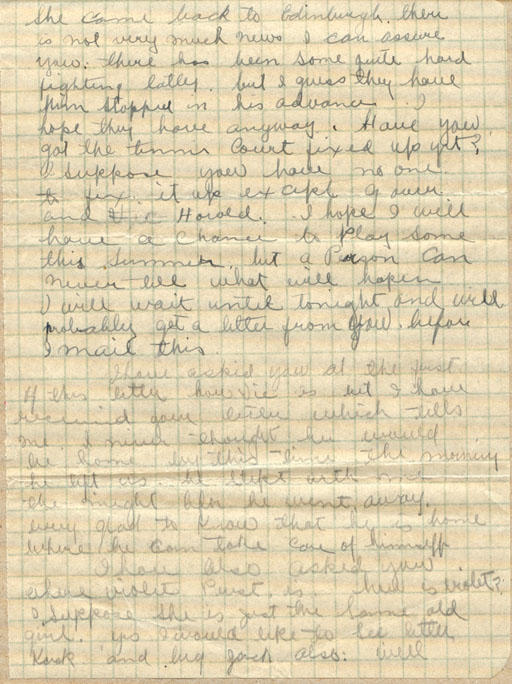 She came back to Edinburgh. there
is not very much news I can assure
you. there has been some quite hard
fighting latly. but I guess they have
him stopped in his advance. I
hope they have anyway. Have you
got the tennis Court fixed up yet?
I suppose you have no one
to fix it up except
and Vic Harold. I hope I will
have a chance to Play some
this summer. but a Person can
never tell what will hapen
I will wait until tonight and will
probably get a letter from you before
I mail this.
I have asked you at the first
of this letter how Vic is but I have
received your letter which tells
me. I never thought he would
be home by this time the morning
he left us. he slept with me
the night before he went away.
very glad to know that he is home
where he can take care of himself
I have also asked you
where violet is. how is violet?
I suppose she is just the same old
girl. yes I would like to see little
and big Jack also. well